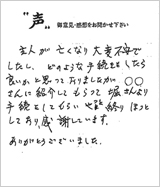 "声"
御意見・感想をお聞かせ下さい
主人が亡くなり大変不安で
したし、どのような手続をしたら
良いかと思って居りましたが〇〇
さんに紹介してもらって堀さんより
手続をしてもらい無事終りほっと
しており、感謝しています。
ありがとうございました。